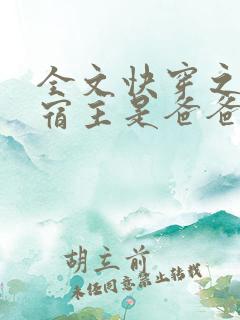 全文快穿之
宿主是爸爸
胡立前
未经同意禁止转载